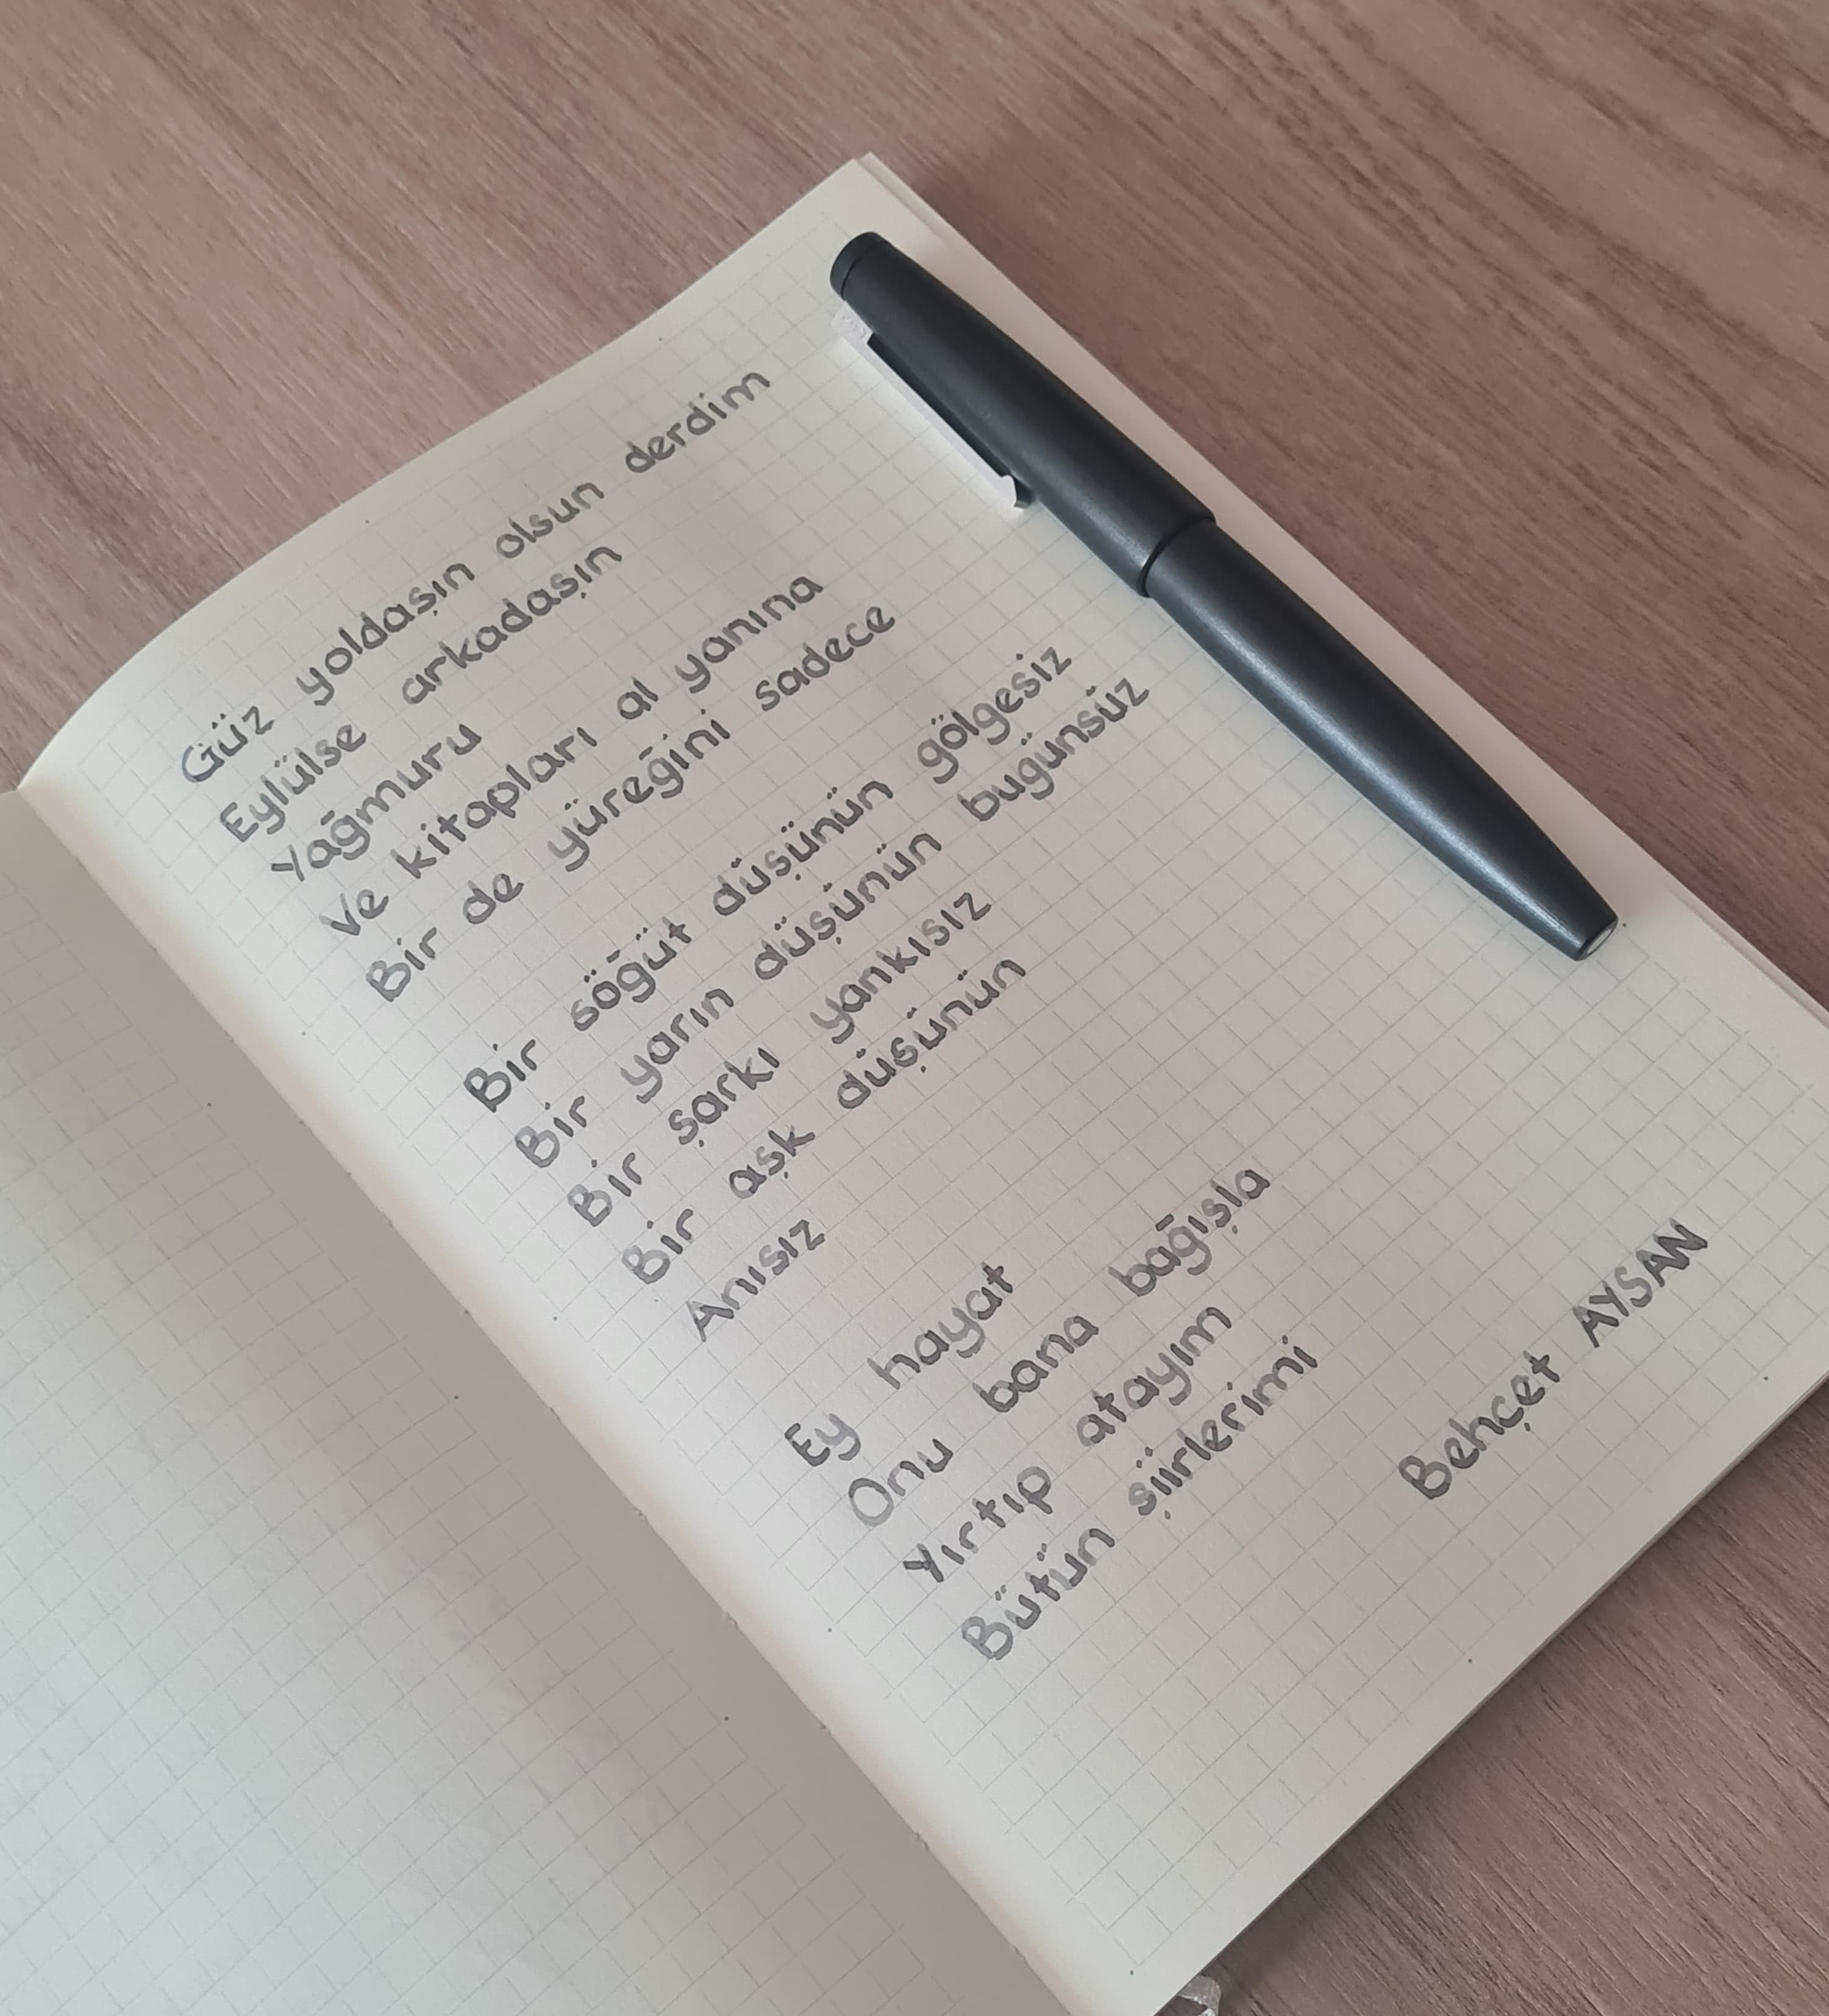 Güz yoldaşın olsun derdim
Eylülse arkadaşın
Yağmuru
Ve kitapları al yanına
Bir de yüreğini sadece
Bir söğüt düşünün gölgesiz
Bir yarın düşünün bugünsüz
Bir şarkı yankısız
Bir aşk düşünün
Anısız
Ey hayat
Onu bana bağışla
Yırtıp atayım
Bütün şiirlerimi
Behçet AYSAN